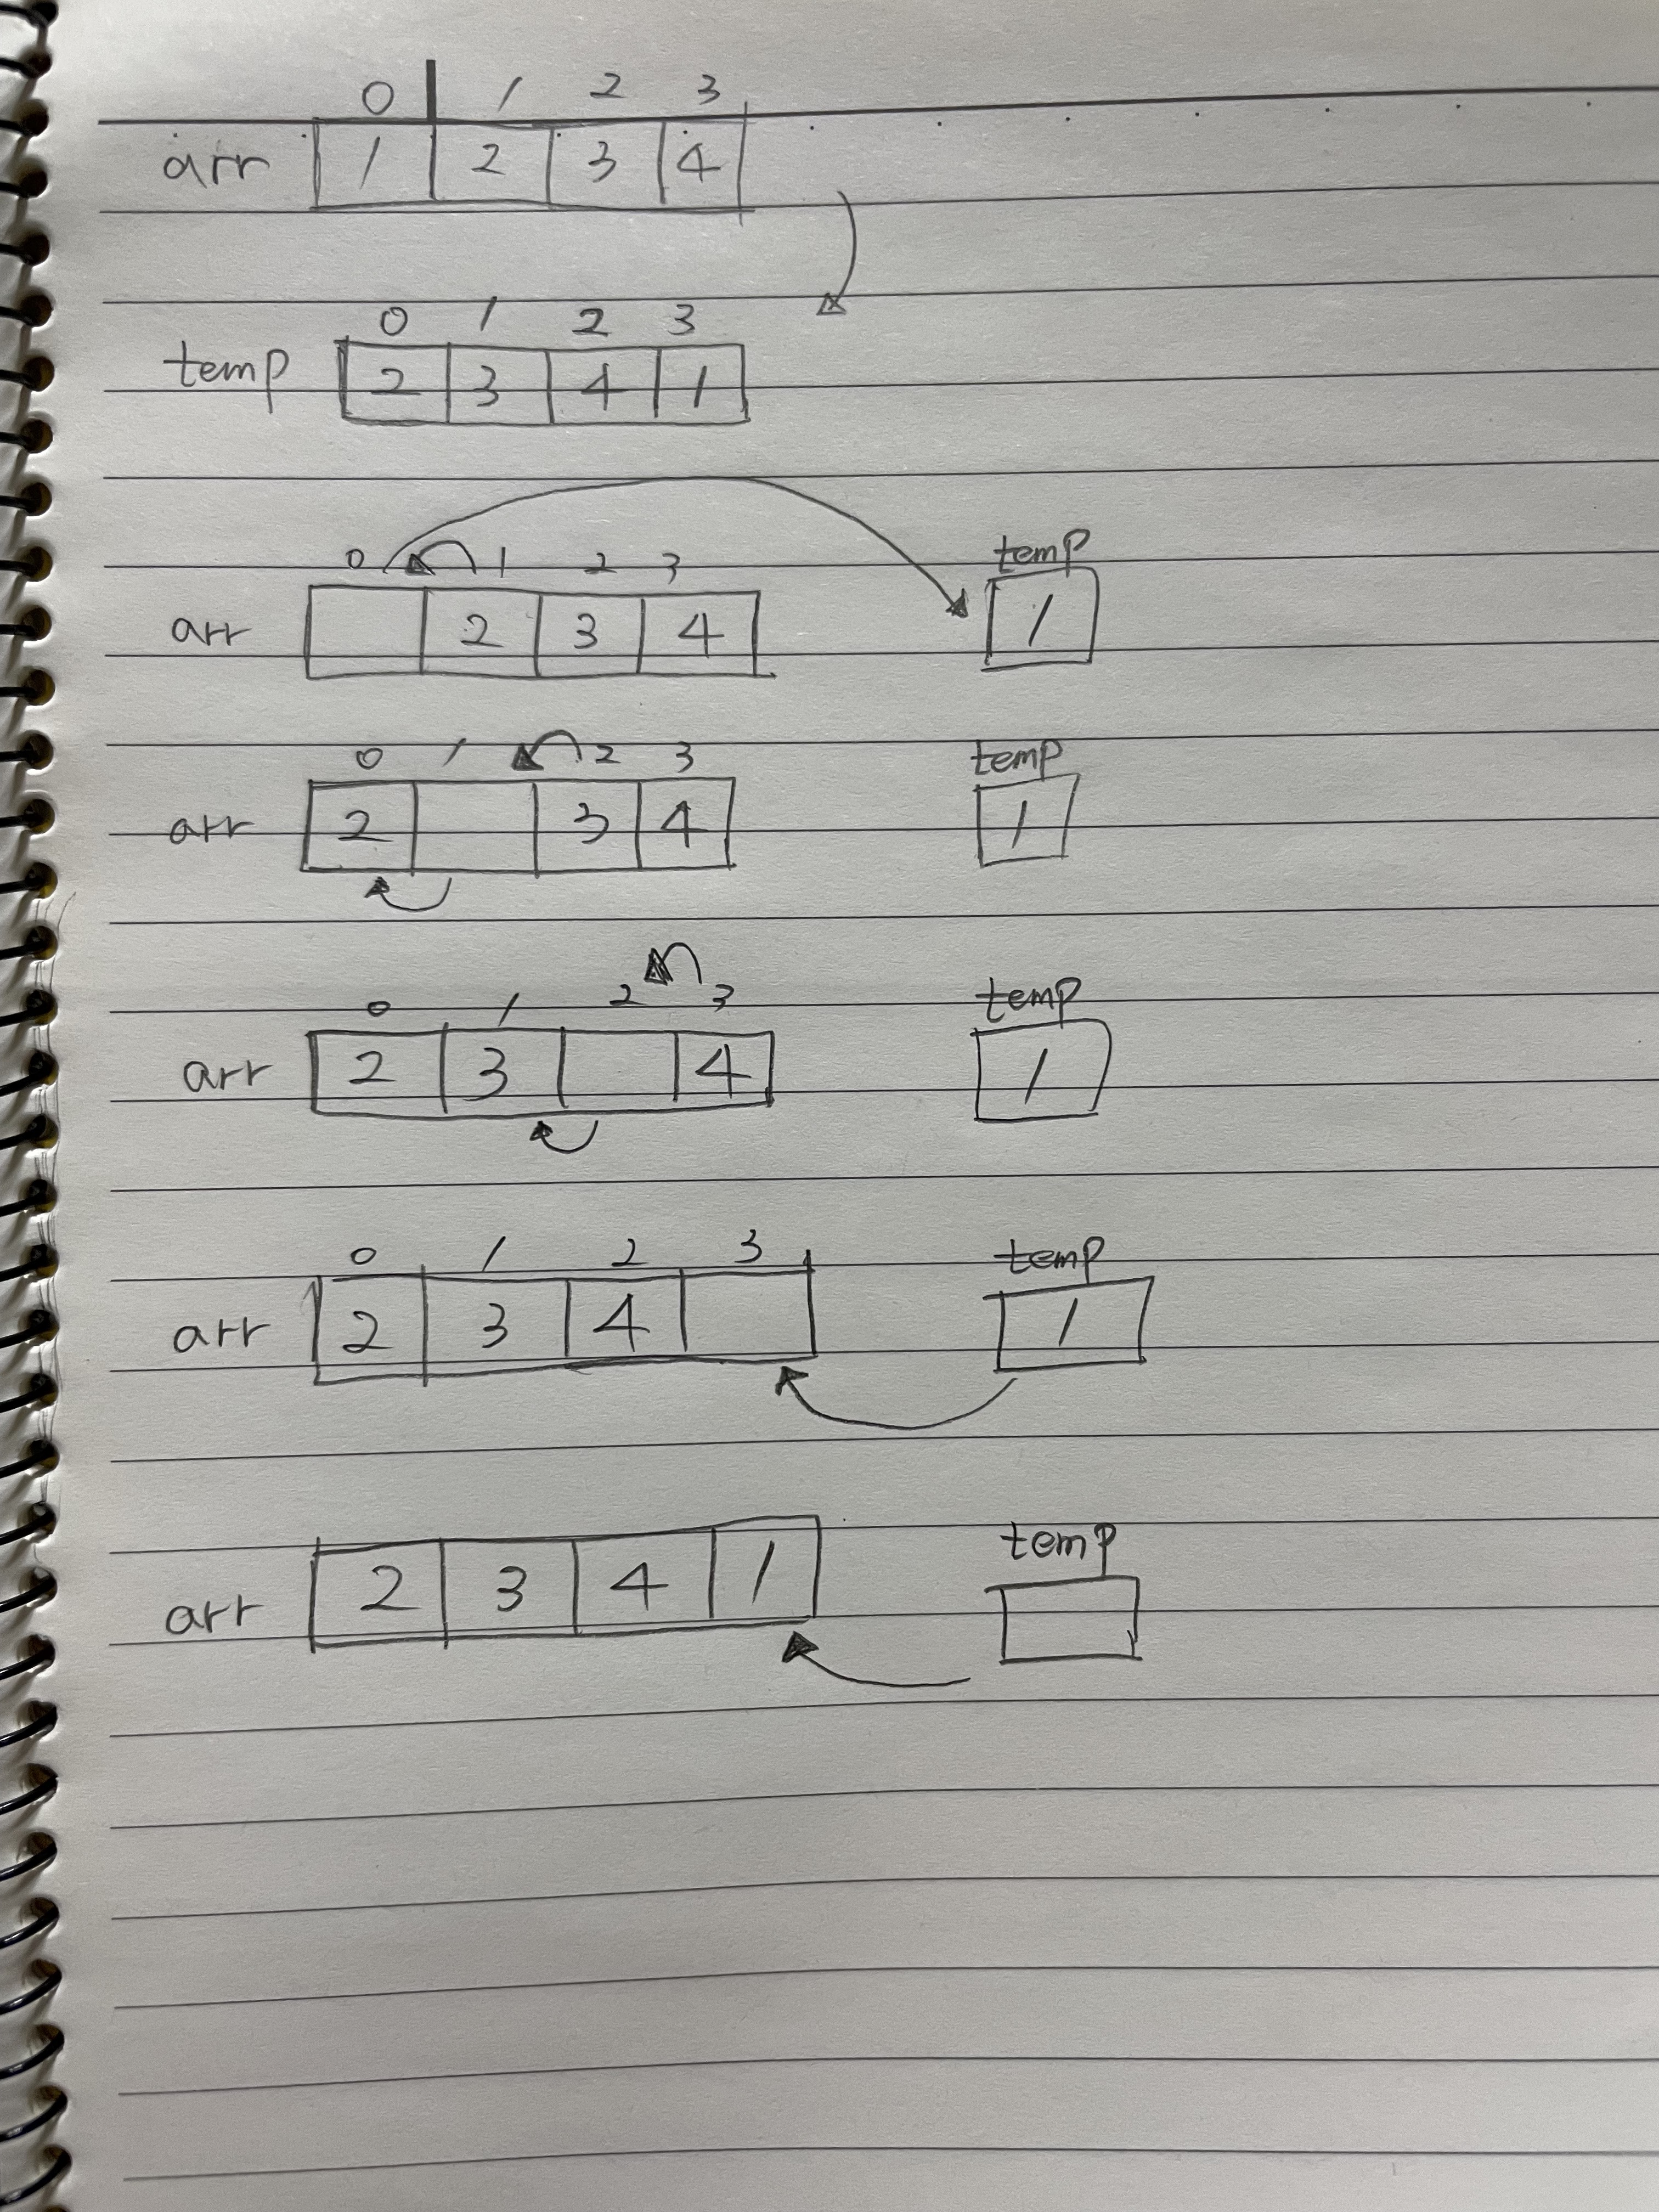 0 1 2 3
arr 1 2 3 4
0 1 2 3
temp 2 3 4 1
0 1 2 3 temp
arr 2 3 4 1
0 1 2 3 temp
arr 2 3 4 1
0 1 2 3 temp
arr 2 3 4 1
0 1 2 3 temp
arr 2 3 4 1
temp
arr 2 3 4 1